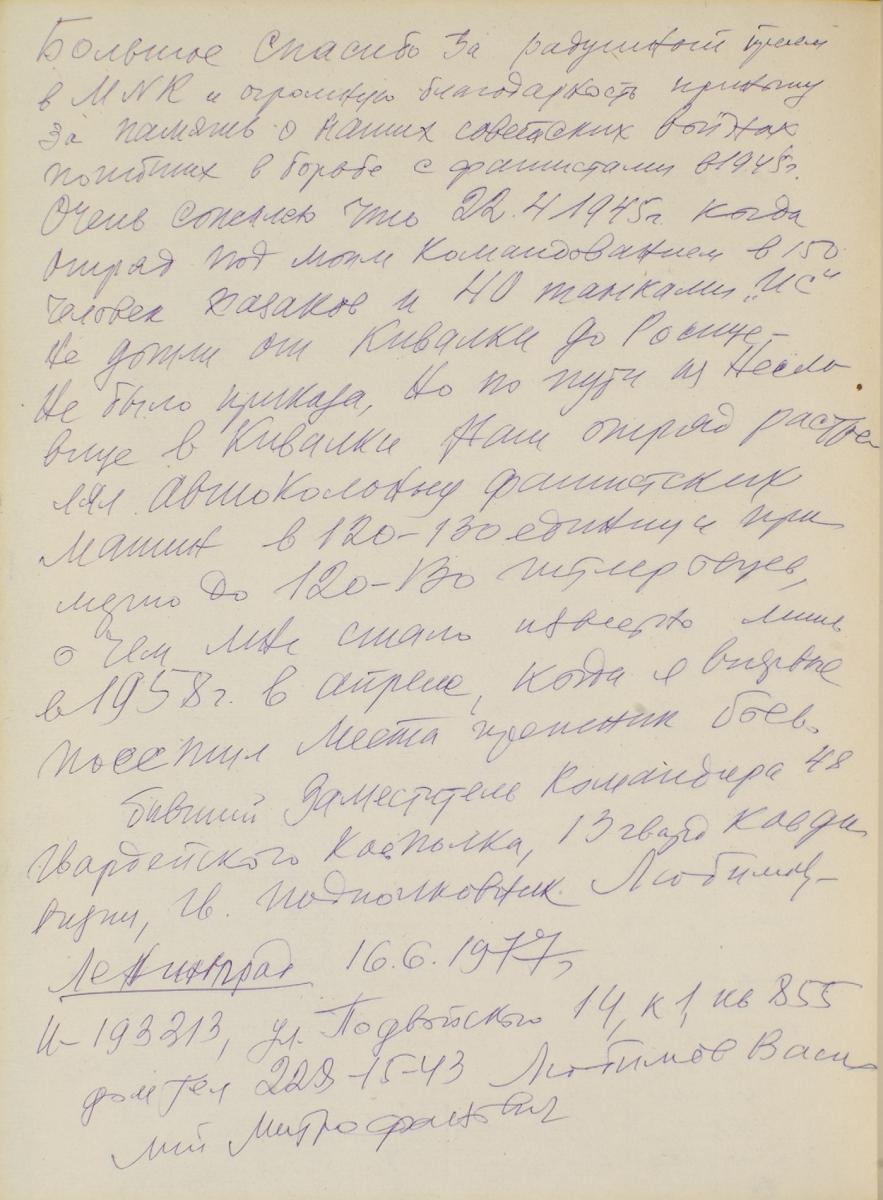 Большое спасибо за радушный прием
в MNK и огромную благодарность приношу
за память о наших советских воинах
погибших в борьбе с фашистами в 1945г.
Очень сожалею что 22.4 1945г. когда
отряд под моим командованием в 150
человек казаков и 40 танками „ИС"
не дошли от Кивалки до Росице-
не было приказа, но по пути из Несло
вице в Кивалки наш отряд расстре
лял автоколонну фашистских
машин в 120-130 единиц и при
мерно до 120-130 гитлеровцев,
о чем мне стало известно лишь
в 1958г. в апреле, когда я впервые
посетил места прежних боев.
бывший заместитель командира 48
гвардейского кавполка, 13 гвард кавди
визии, гв. подполковник Любимов-
Ленинград 16.6.1977г
И-193313, ул. Подвойского 14, к 1, кв 855
дом тел 228-15-43 Любимов Васи
лий Митрофанович